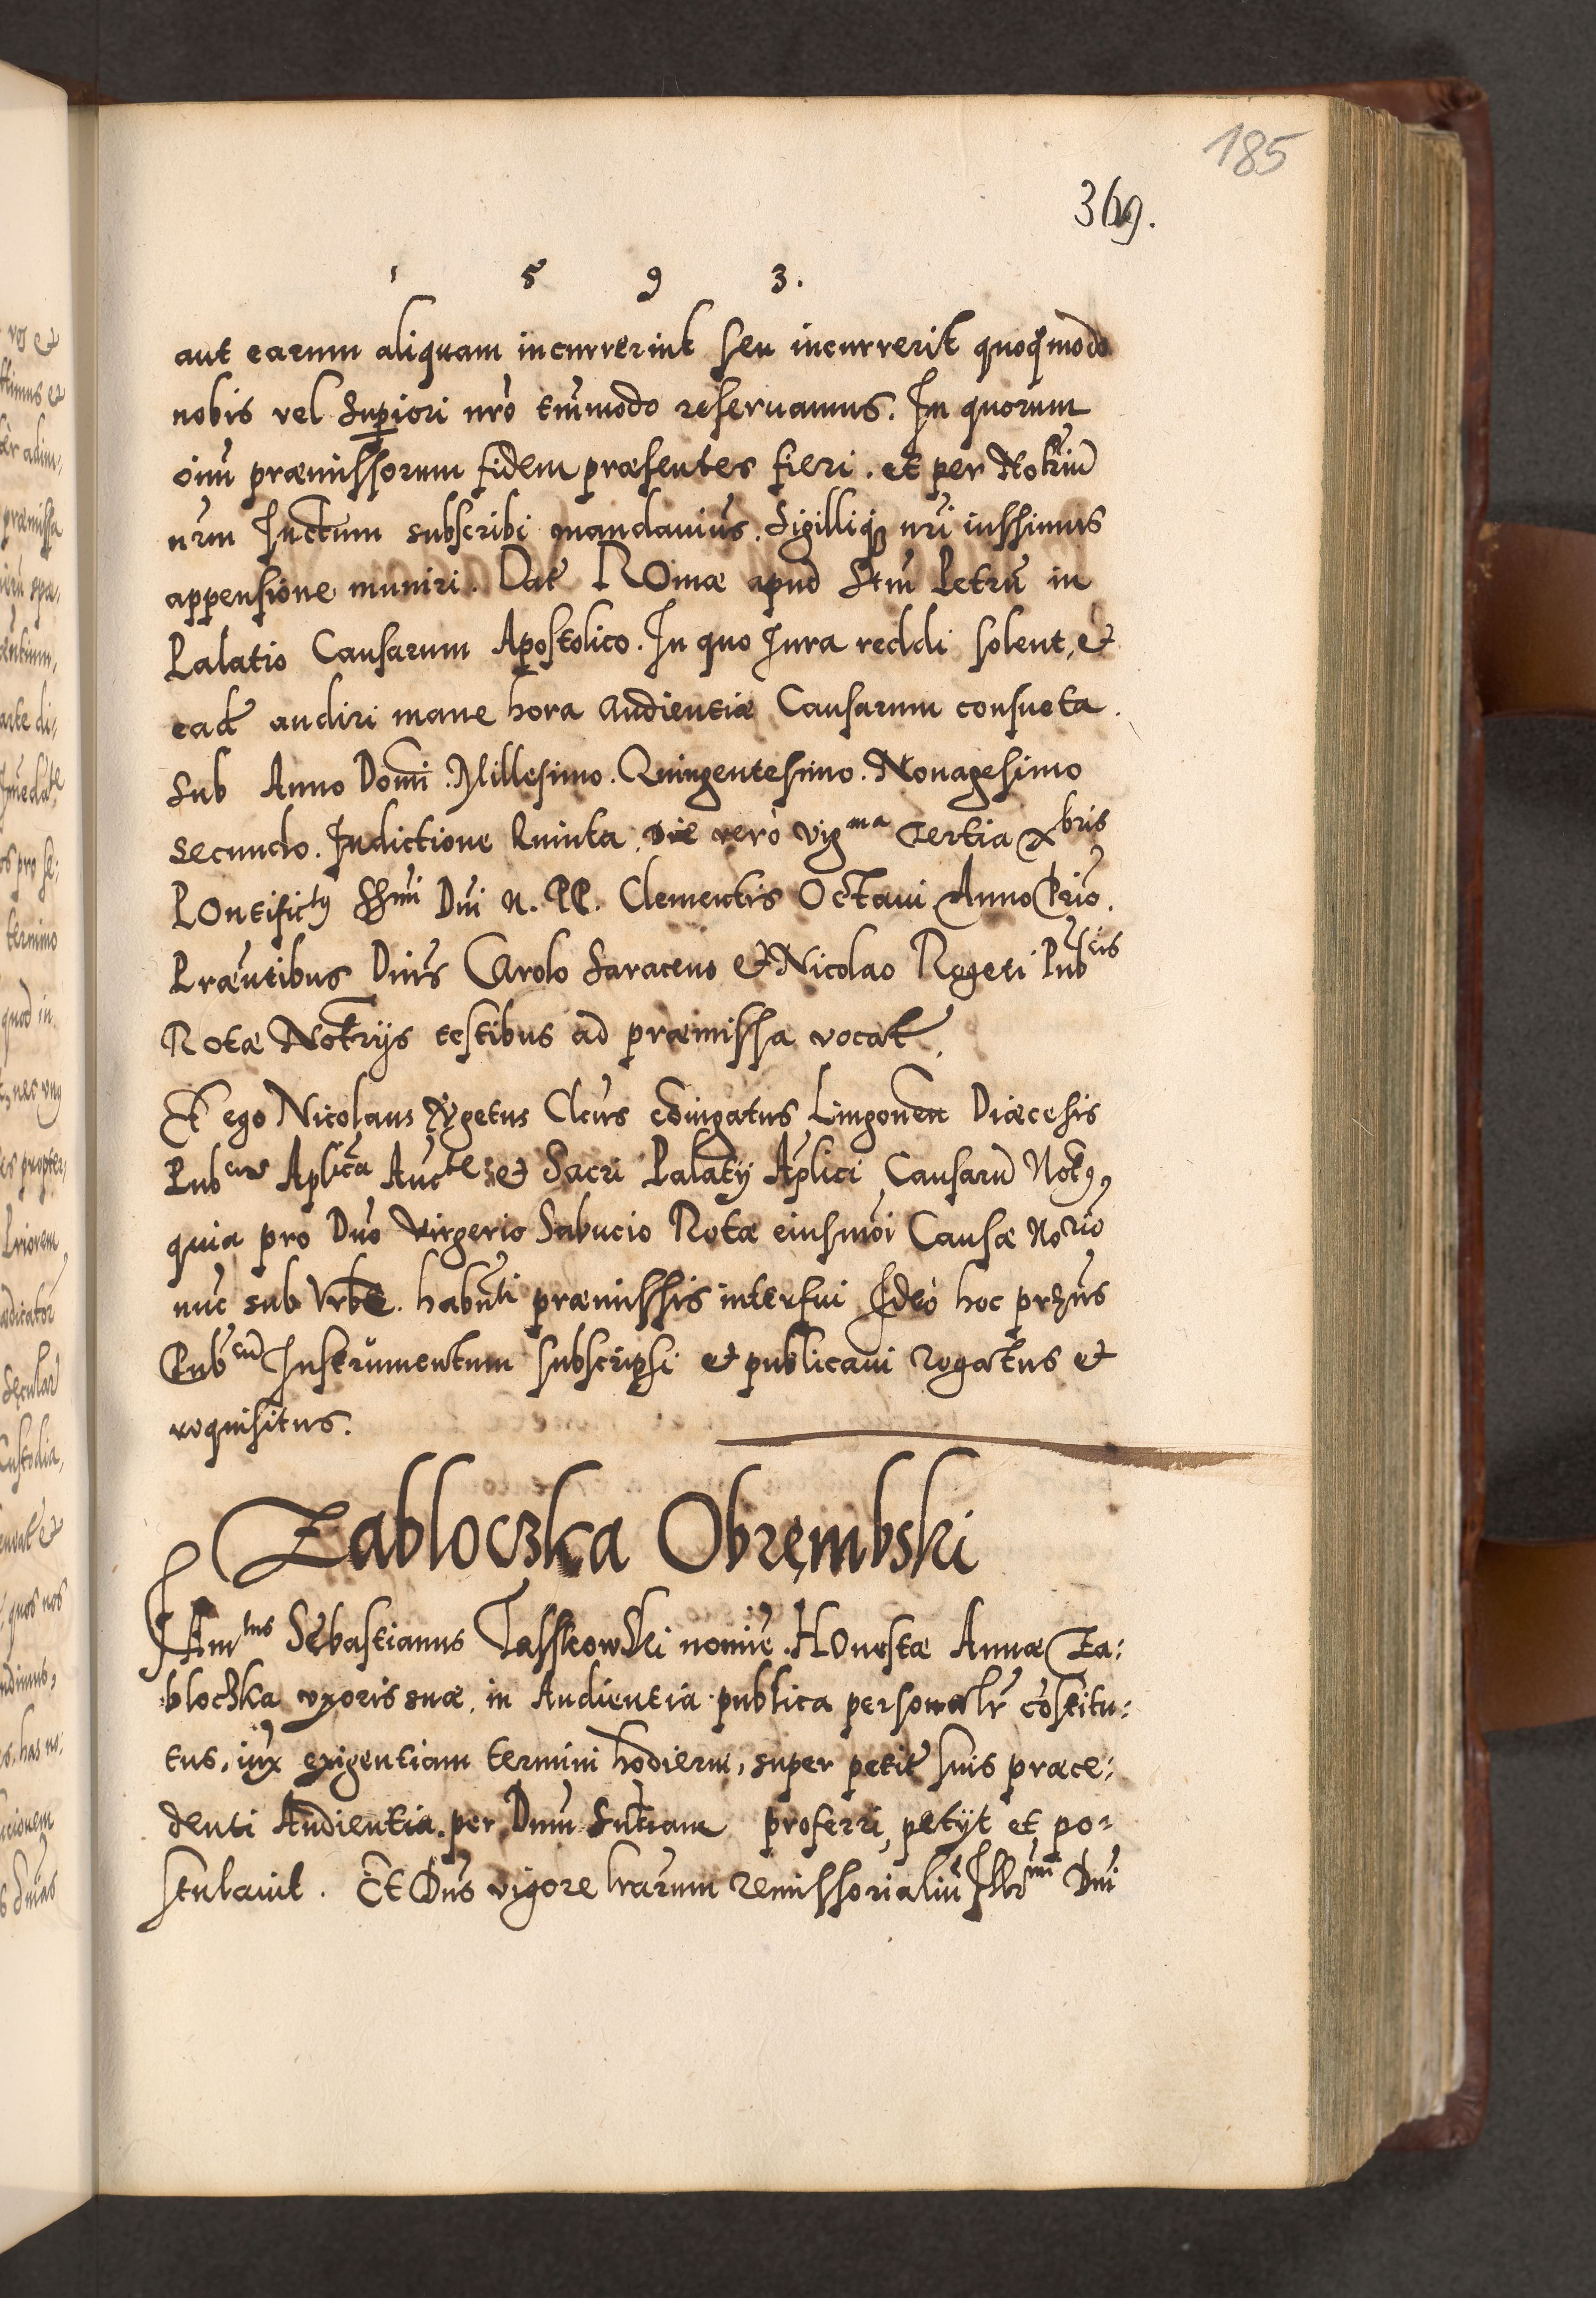 185
369.
1 5 9 3.
aut earum aliquam incurrerint seu incurrerit quoq̃modo
nobis vel Supiori nr̃o tm̃modo reseruamus. In quorum
oĩm præmissorum fidem præsentes fieri. et per Notr̃iũ
nr̃m Inctum subscribi mandauim̃s. Sigilliq̃ nr̃i iussimus
appensione muniri. Dat̃ ROmæ apud Stm̃ Petrũ in
Palatio Causarum Apostolico. In quo Iura reddi solent, et
ead̃ audiri mane hora audientiæ Causarum consueta.
Sub Anno Domĩ Millesimo. Quingentesimo. Nonagesimo
secundo. Indictione Quinta, Die verò vigma Tertia xbris
POntificty SSmi Dñi N. PP. Clementis Octaui Anno Prĩo.
Præñtibus Dñis CArolo Saraceno et Nicolao Rogeti Pubcis
Rotæ Notr̃ijs testibus ad præmissa vocat̃.
Et ego Nicolaus Rogetus Clcũs cõiugatus Lingoneñ Diæcesis
Pubcus Aplica Aucte et Sacri Palatij Aplici Causarũ Notq̃,
quia pro Dño Virgerio Sabucio Rotæ eiusmõi Causæ Norio
nũc sub Vrbe. habñti præmissis interfui Ideò hoc przñs
Pubcũ Instrumentum subscripsi et publicaui rogatus et
requisitus.
Zabloczka Obrembski
FAmtus Sebastianus Tasskowski nomiẽ HOnestæ Annæ Za:
bloczka vxoris suæ, in Audientia publica personalr̃ cõstitu:
tus, iux̃ exigentiam termini hodierni, super petit̃ suis præce:
denti Audientia per Dnũ Snt̃iam proferri petijt et po:
stulauit. Et Dñs vigore lr̃arum remissorialiũ Illrmi Dñi